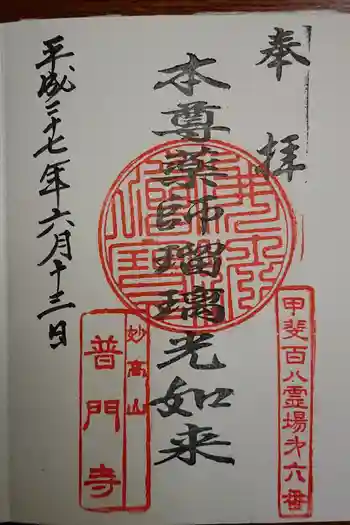 奉拝
甲斐百八霊場才六番
本尊薬師瑠璃光如来
妙高山
普門寺
平成二十七年六月十三日